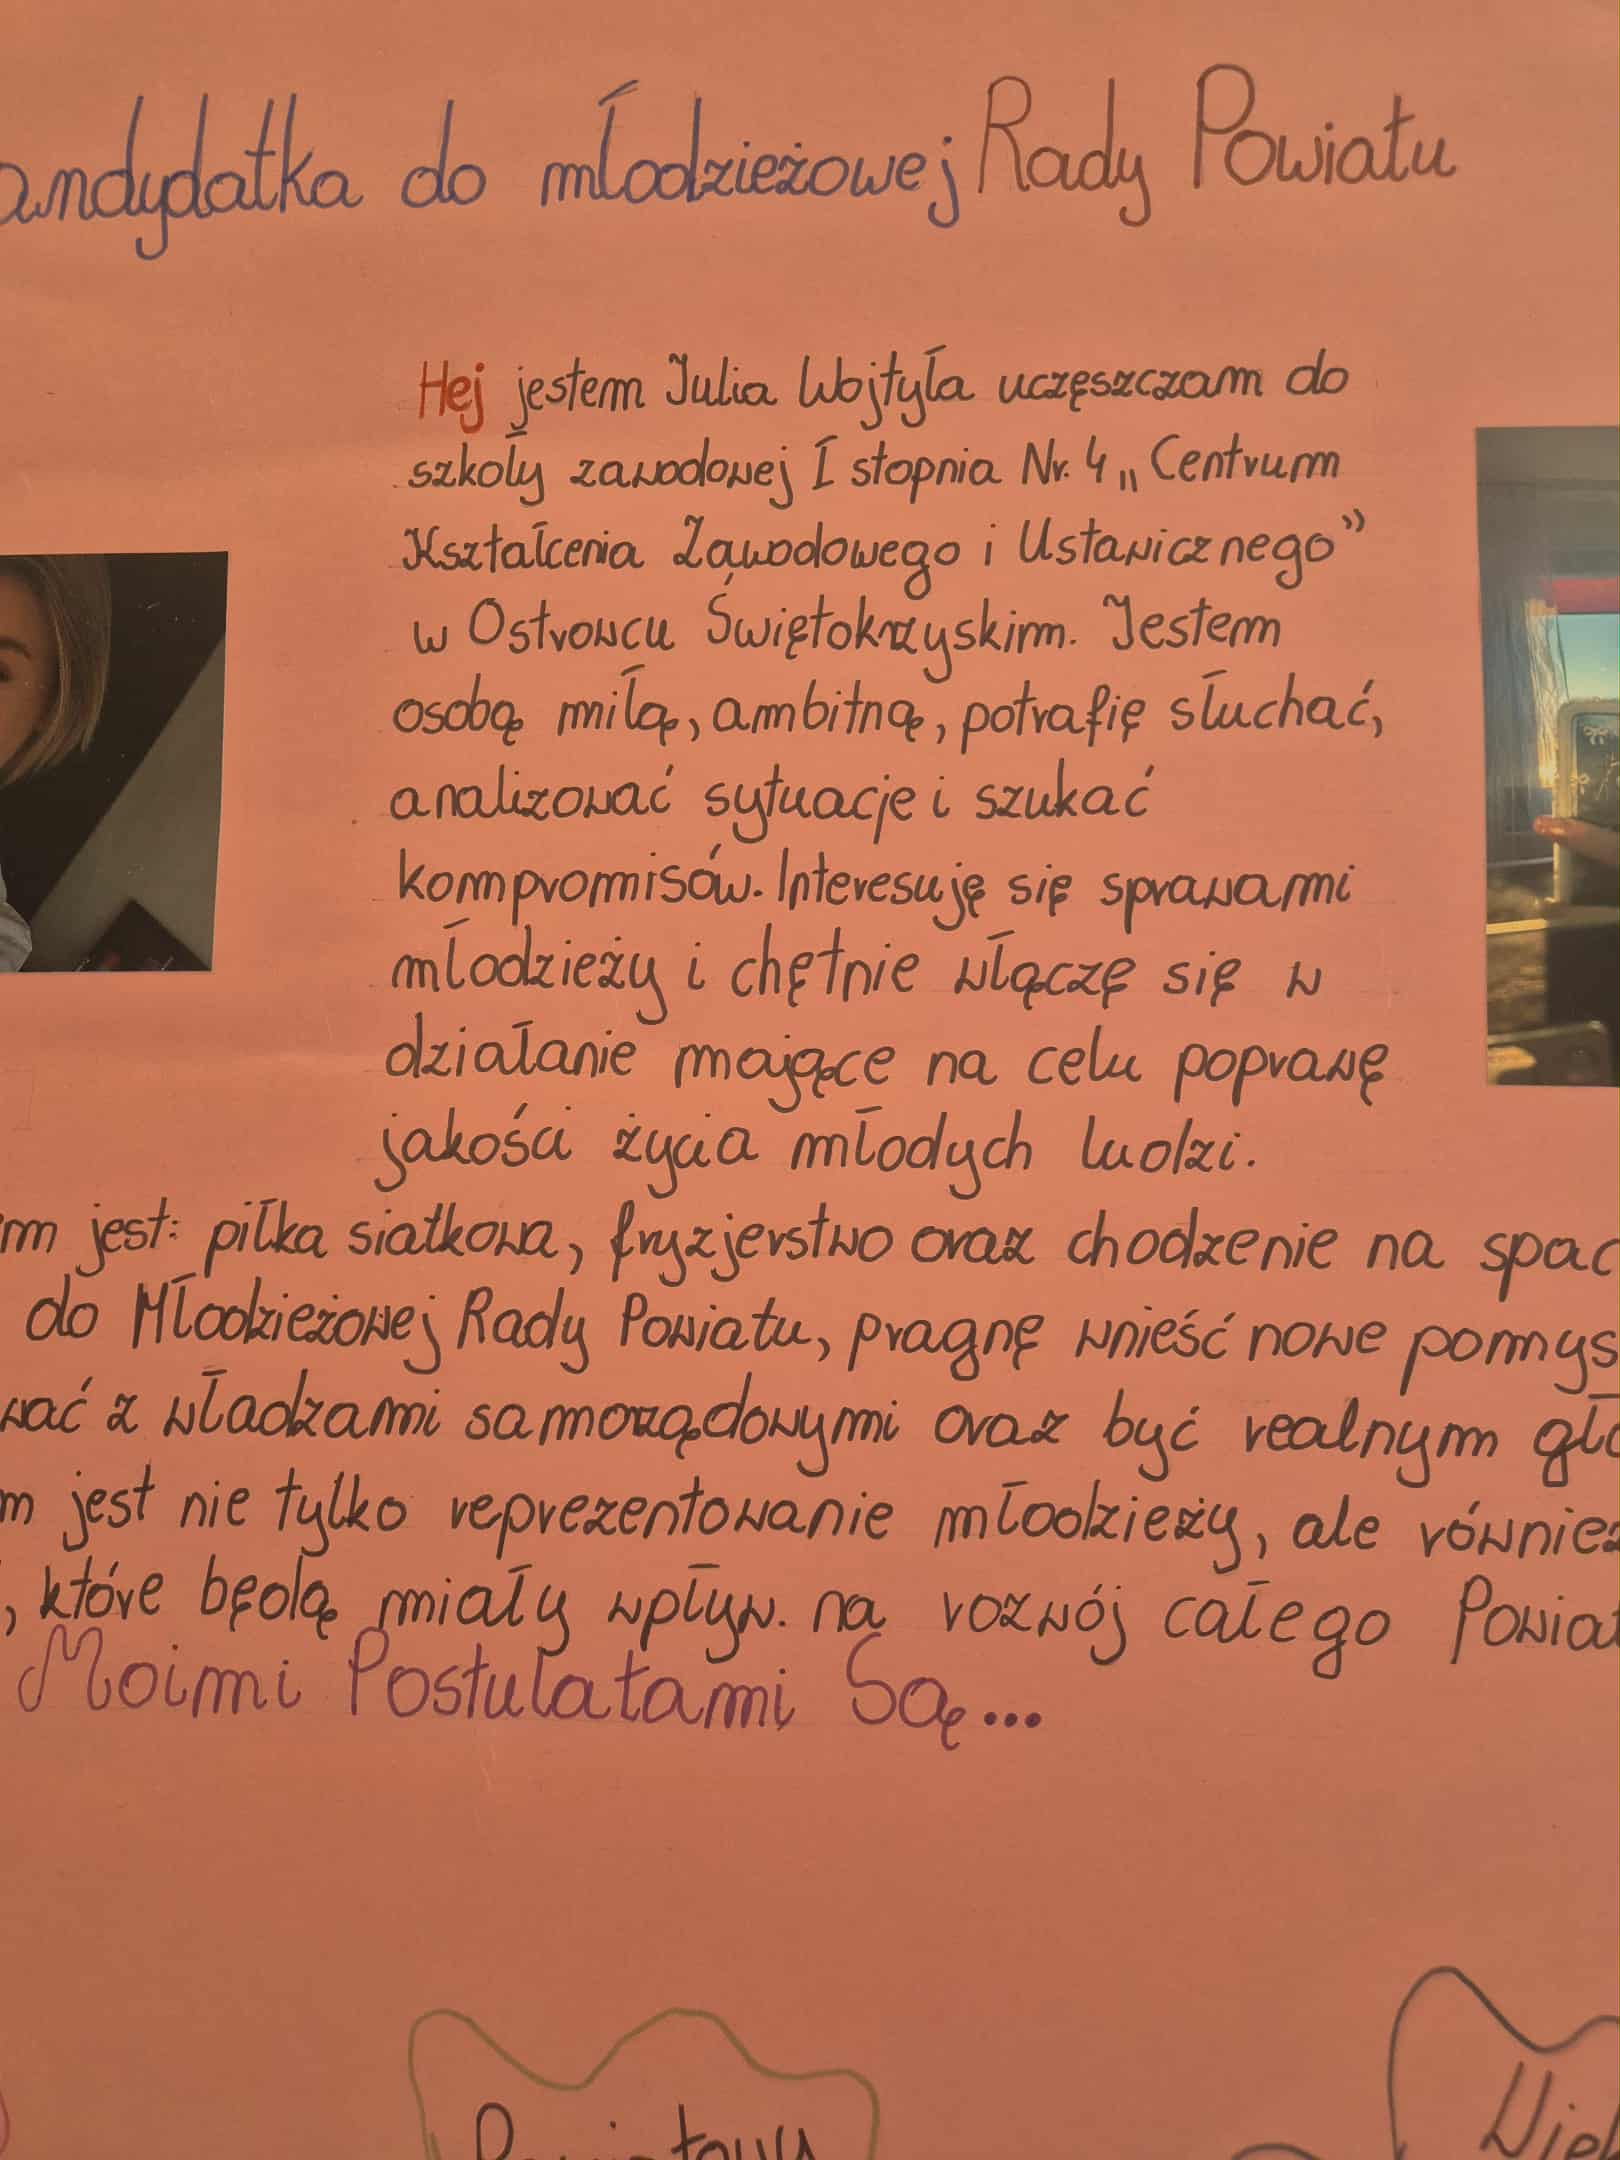 andydatka do młodzieżowej Rady Powiatu
Hej jestem Julia Wojtyła uczęszczam do
szkoły zawodowej I stopnia Nr. 4 „Centrum
Kształcenia Zawodowego i Ustawicznego”
w Ostrowcu Świętokrzyskim. Jestem
osobą miłą, ambitną, potrafię słuchać,
analizować sytuacje i szukać
kompromisów. Interesuję się sprawami
młodzieży i chętnie włączę się w
działanie mające na celu poprawę
jakości życia młodych ludzi.
im jest: piłka siatkowa, fryzjerstwo oraz chodzenie na spac
do Młodzieżowej Rady Powiatu, pragnę wnieść nowe pomys
wać z władzami samorządowymi oraz być realnym gło
m jest nie tylko reprezentowanie młodzieży, ale równie
, które będą miały wpływ. na rozwój całego Powiat
Moimi Postulatami Są...
Powiatowy